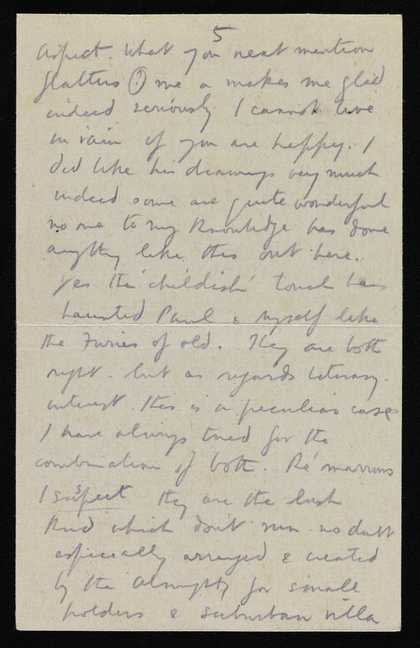 5
aspect. What you next mention
flatters (?) me & makes me glad
indeed seriously I cannot live
in vain if you are happy. I
did like his drawings very much
indeed some are quite wonderful
no one to my knowledge has done
anything like this out here.
Yes the 'childish' touch has
haunted Paul & myself like
the Furies of old. They are both
right. but as regards literary
interest this is a peculiar case
I have always tried for the
combination of both. Re' marrows
I suspect they are the bush
kind which don't run no doubt
especially arranged & created
by the Almighty for small
holders & suburban villa